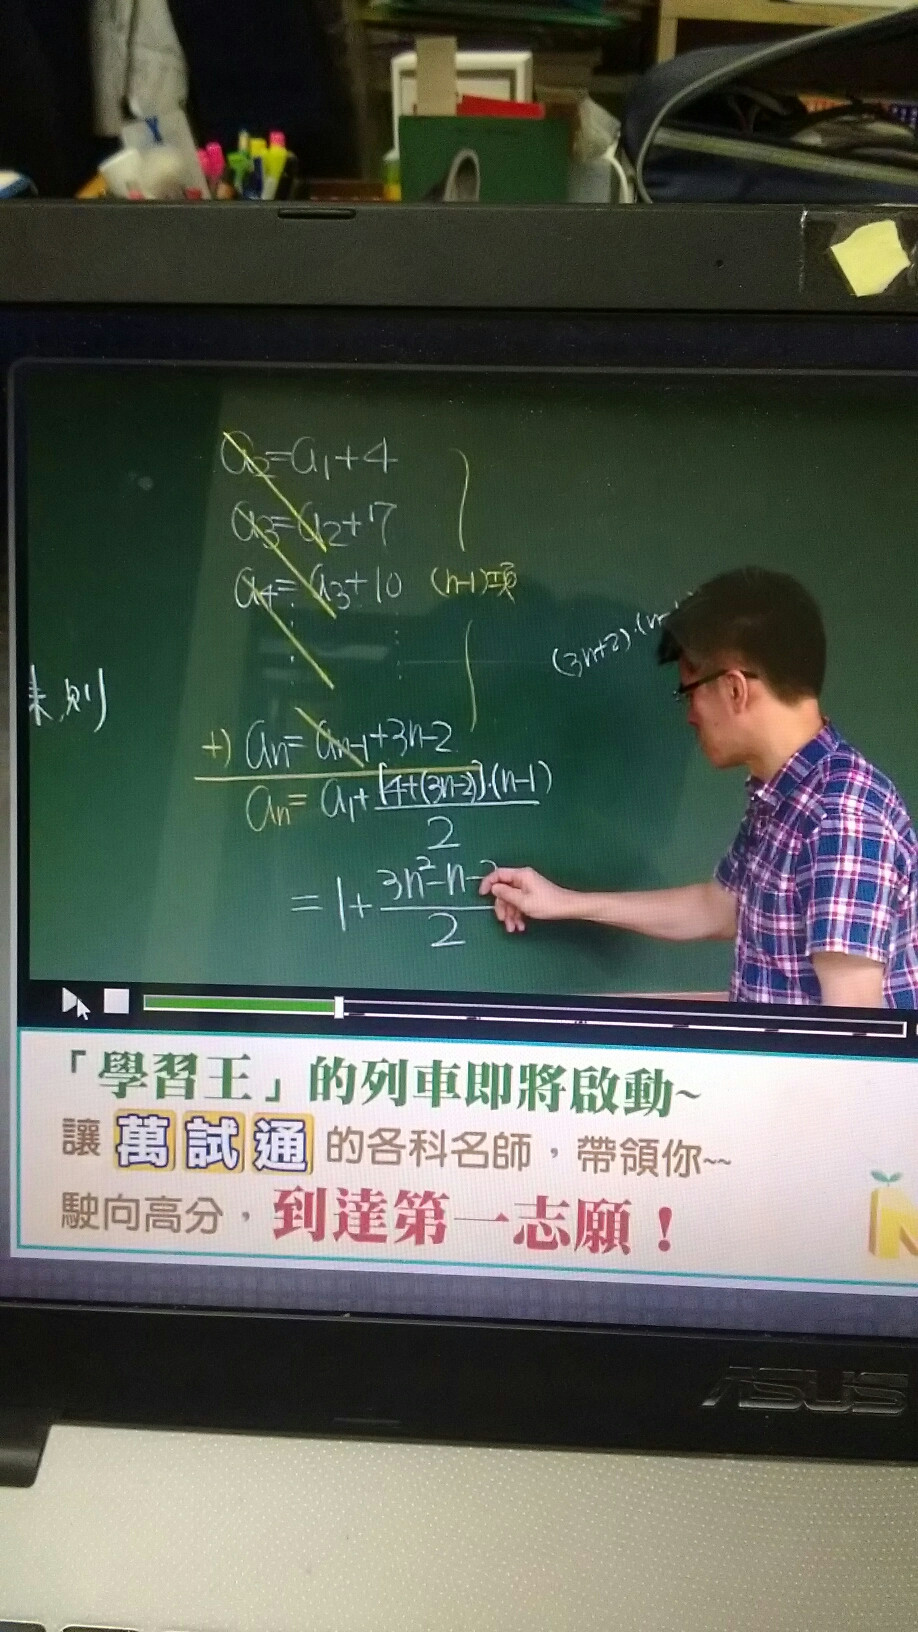 a₂=a₁+4
a₃=a₂+7
a₄=a₃+10 (n-1)項
⋮ ⋮
(3n+2)·(n-1
則
+) aₙ=aₙ₋₁+3n-2
aₙ= a₁+[4+(3n-2)]·(n-1)/2
=1+3n²-n-2/2
「學習王」的列車即將啟動~
讓萬試通的各科名師，帶領你~~
駛向高分，到達第一志願！
ASUS